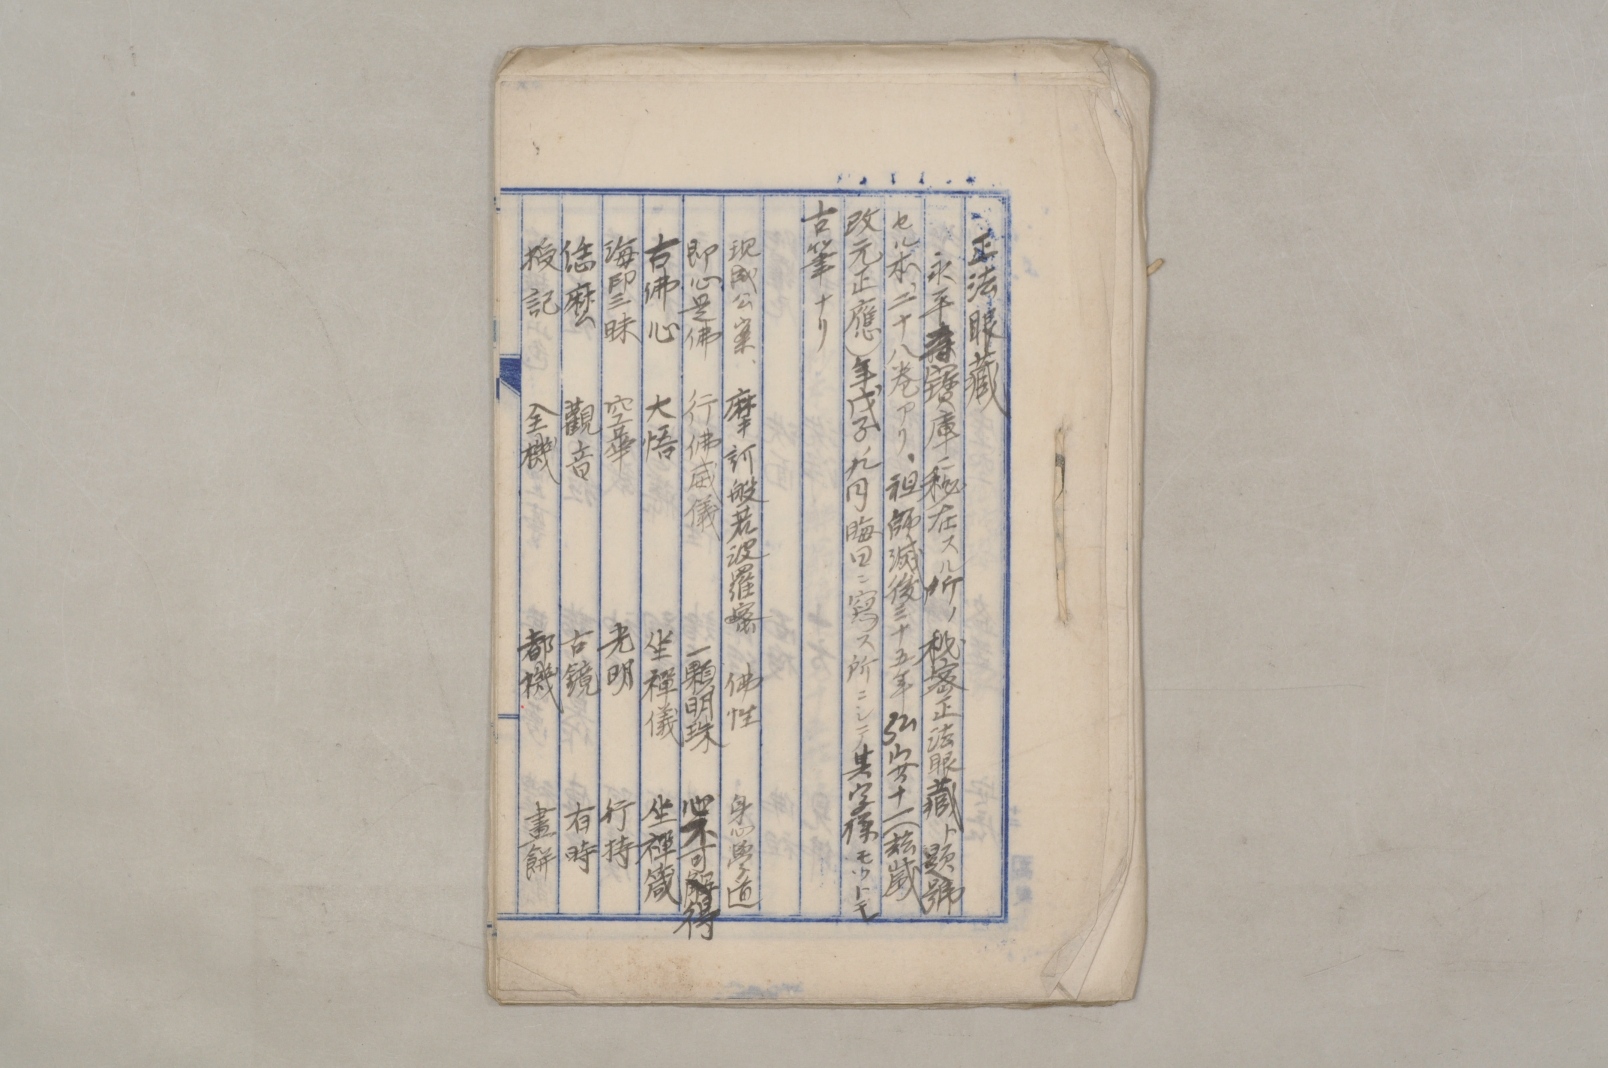 正法眼藏
永平寺寶庫ニ秘在スル所ノ秘密正法眼藏ト題號
セル本、二十八卷アリ、祖師滅後三十五年弘安十一(玆歲
改元正應)年戊子ノ九月晦日ニ寫ス所ニシテ其字樣モットモ
古筆ナリ
現成公案、 摩訶般若波羅蜜 佛性 身心學道
即心是佛 行佛威儀 一顆明珠 心不可得
古佛心 大悟 坐禪儀 坐禪箴
海印三昧 空華 光明 行持
恁麼 觀音 古鏡 有時
授記 全機 都機 畫餅